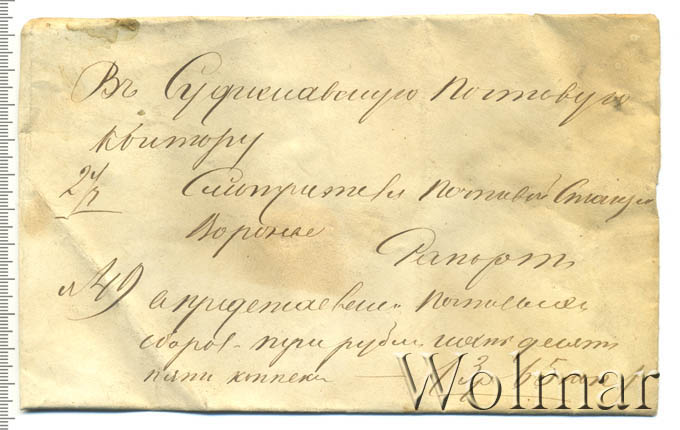 Въ Судиславскую Почтовую
Контору
24/п Смотрителя Почтовой Станции
Воронье
Рапортъ
№ 49 о представлении Почтовыхъ
сборовъ три рубли шесть десятъ
пяти копеекъ 3 65
Wolmar